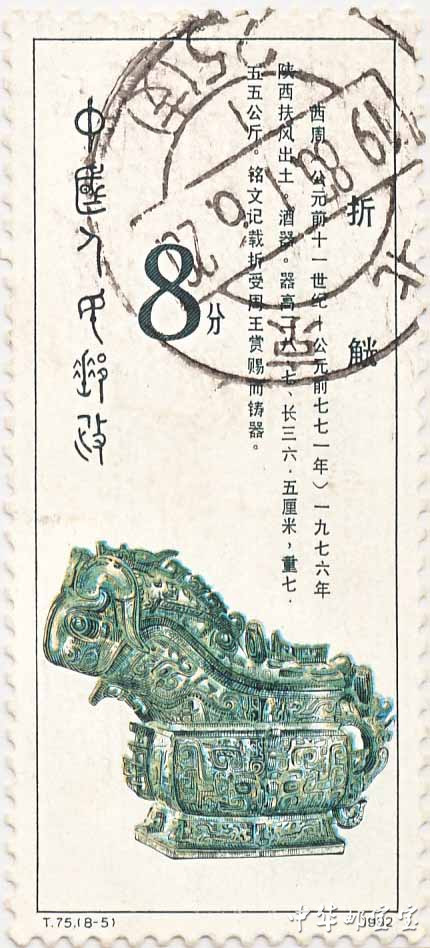 折觥
西周(公元前十一世纪-公元前七七一年)一九七六年
陕西扶风出土。酒器。器高二八.七、长三六.五厘米,重七.
五五公斤。铭文记载折受周王赏赐而铸器。
8分
中国人民邮政
北京
T.75.(8-5)
1982
中华邮宝室